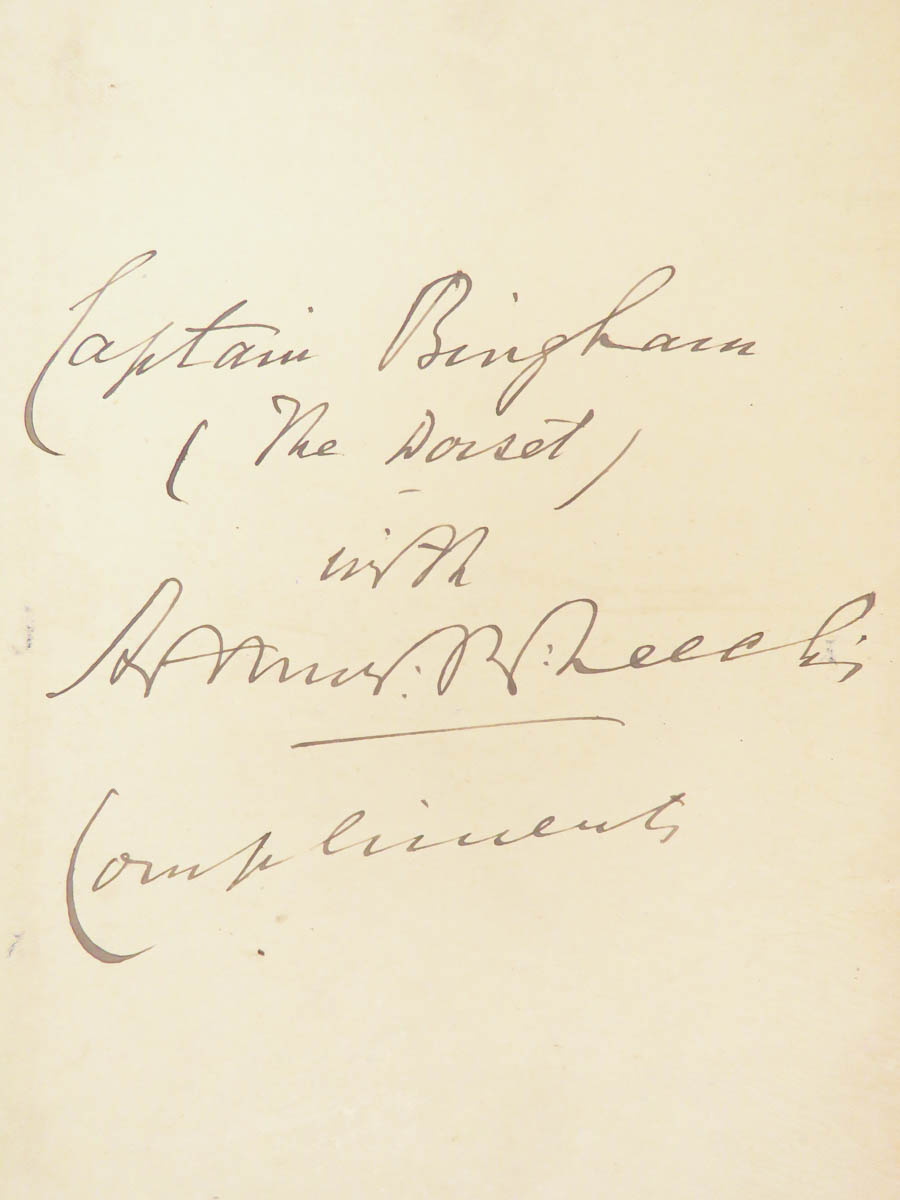 Captain Bingham
(The Dorset)
with
Arthur: R: Leech's
Compliments